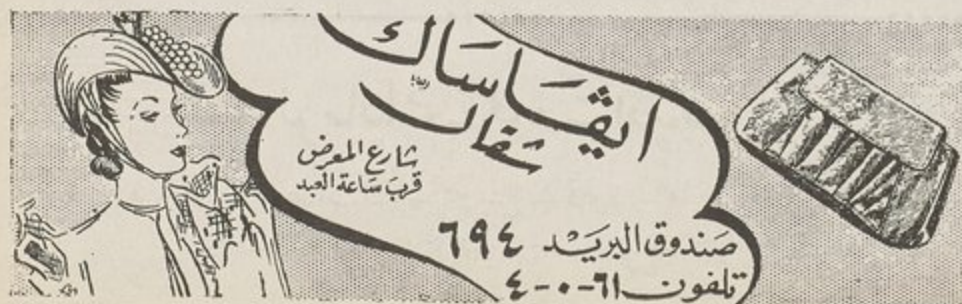 ايڤا ساك
سقال
شارع المعرض
قرب ساعة العبد
صندوق البريد ٦٩٤
تلفون ٦١-٠-٤